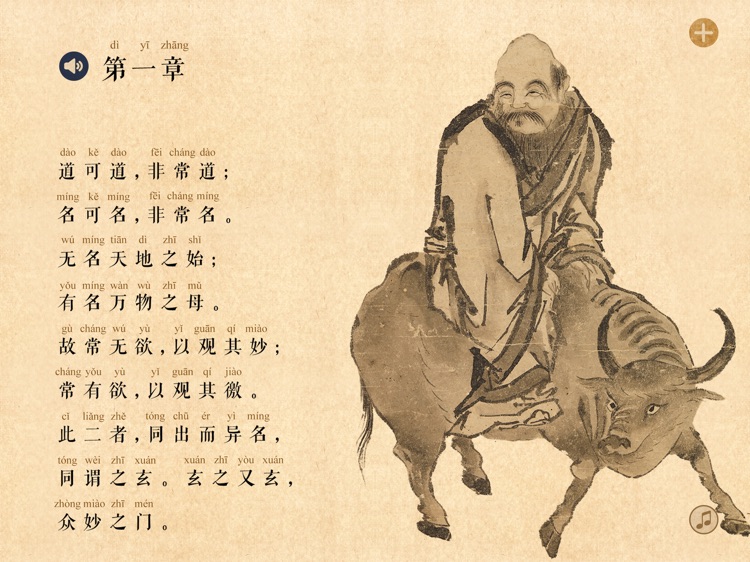 dì yī zhāng
第一章
dào kě dào fēi cháng dào
道可道,非常道;
míng kě míng fēi cháng míng
名可名,非常名。
wú míng tiān dì zhī shǐ
无名天地之始;
yǒu míng wàn wù zhī mǔ
有名万物之母。
gù cháng wú yù yǐ guān qí miào
故常无欲,以观其妙;
cháng yǒu yù yǐ guān qí jiào
常有欲,以观其徼。
cǐ liǎng zhě tóng chū ér yì míng
此二者,同出而异名,
tóng wèi zhī xuán xuán zhī yòu xuán
同谓之玄。玄之又玄,
zhòng miào zhī mén
众妙之门。